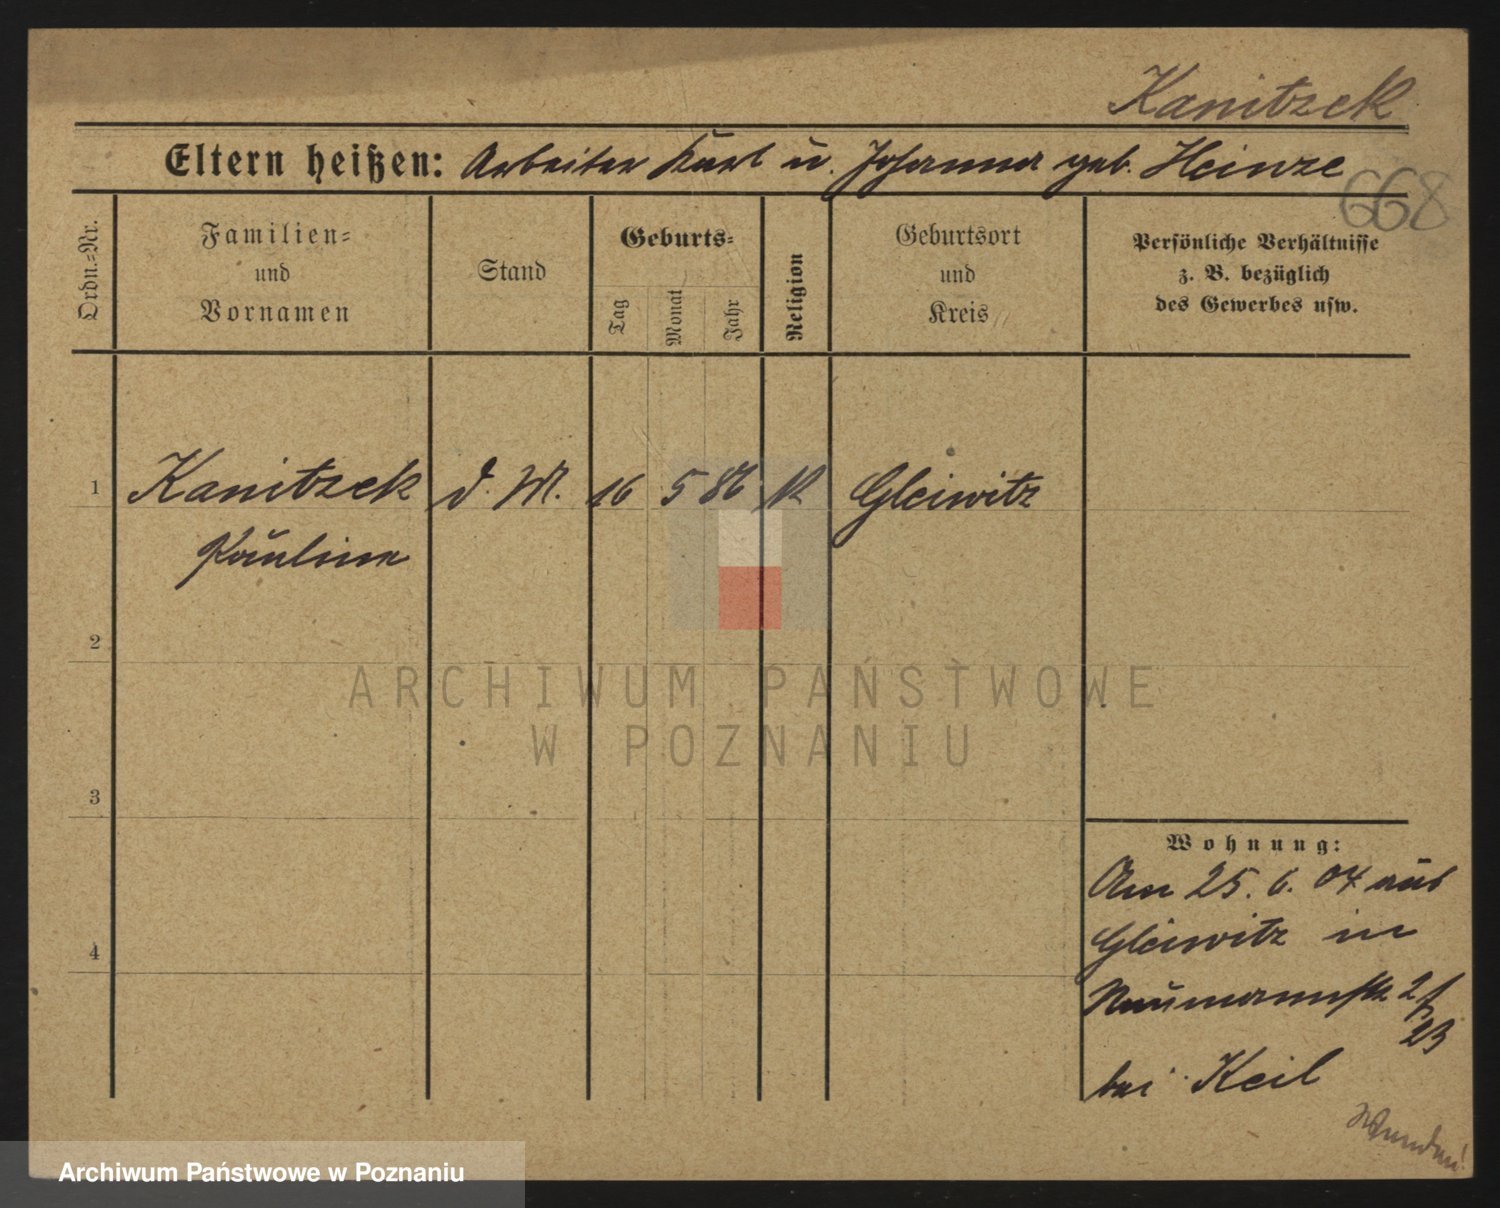 Kanitzek
Eltern heißen: Arbeiter Karl u. Johanna geb. Heinze
668
Ordn.-Nr.
Familien-
und
Vornamen
Stand
Geburts-
Tag
Monat
Jahr
Religion
Geburtsort
und
Kreis
Persönliche Verhältnisse
z. B. bezüglich
des Gewerbes usw.
1 Kanitzek d. M. 16 5 86 K Gleiwitz
Pauline
2
ARCHIWUM PAŃSTWOWE
W POZNANIU
3
Wohnung:
Am 25. 6. 04 aus
4
Gleiwitz in
Naumannstr
23
bei Keil
Wenden!
Archiwum Państwowe w Poznaniu